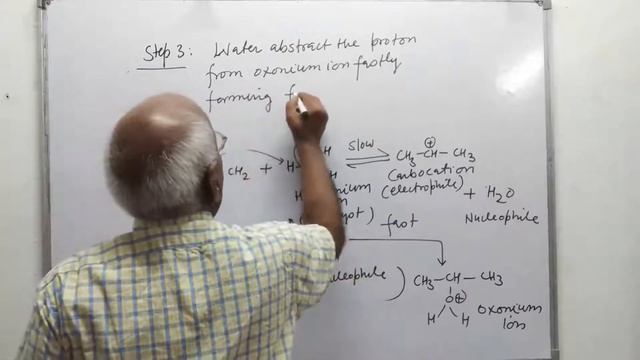 Step 3: Water abstract the proton
from oxonium ion fastly
forming f
CH2 + H
H
H
slow
CH3-CH-CH3
⊕
Carbocation
(electrophile)
+ H2O
Nucleophile
fast
)
CH3-CH-CH3
O⊕
H H
oxonium
ion